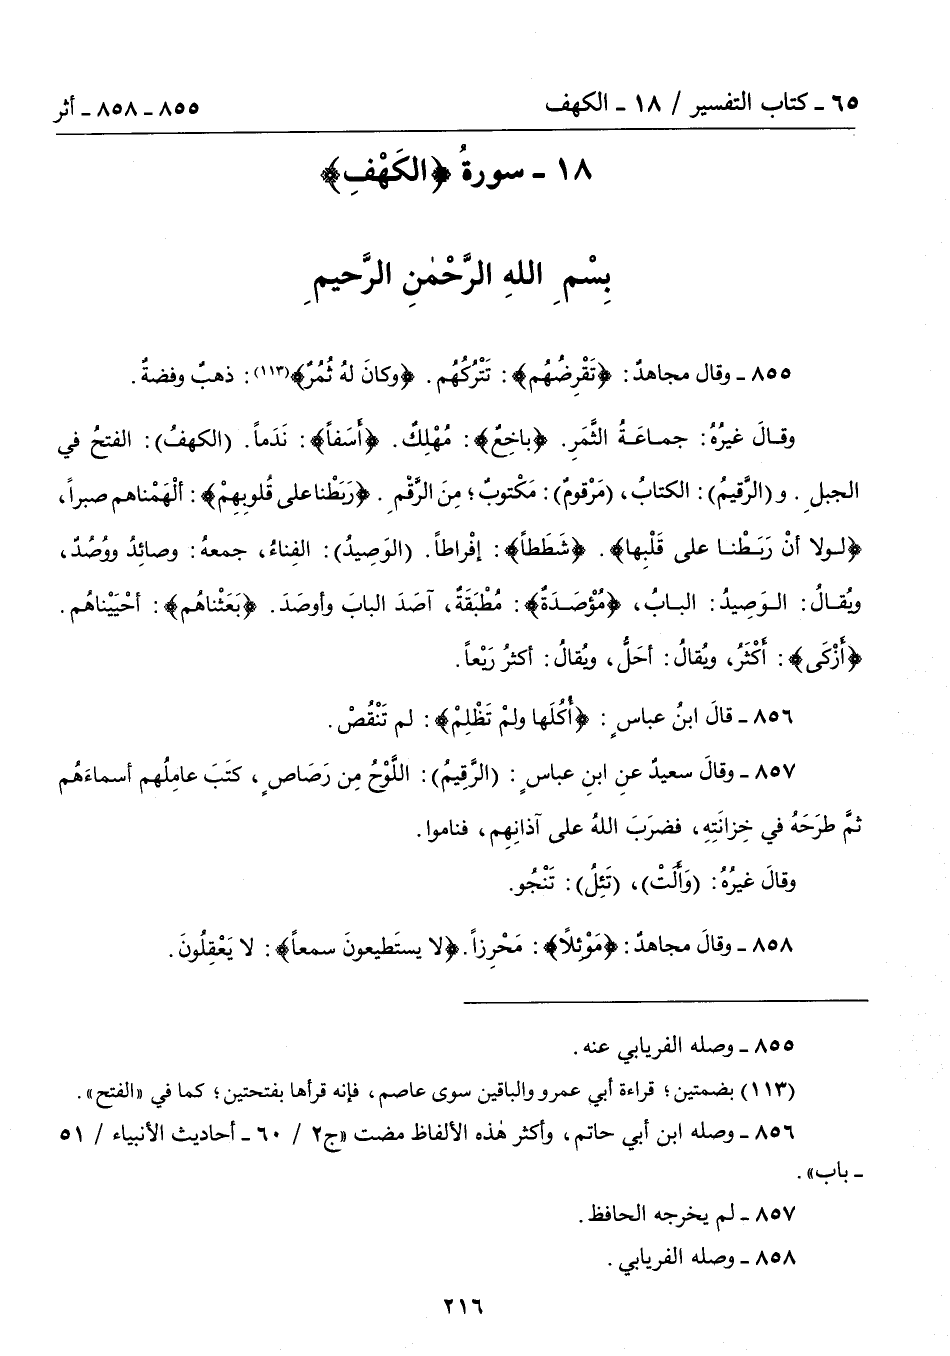 ٦٥ ـ كتاب التفسير / ١٨ ـ الكهف
٨٥٥ ـ ٨٥٨ ـ أثر
١٨ ـ سورةُ ﴿الكَهْفِ﴾
بِسْمِ اللهِ الرَّحْمٰنِ الرَّحيمِ
٨٥٥ ـ وقال مجاهدٌ: ﴿تَقْرِضُهُم﴾: تَتْرُكُهُم. ﴿وكانَ لهُ ثُمُرٌ﴾(١١٣): ذهبٌ وفضةٌ.
وقـالَ غيرُهُ: جمـاعَـةُ الثَّمَرِ. ﴿باخِعٌ﴾: مُهْلِكٌ. ﴿أَسَفاً﴾: نَدَماً. (الكهفُ): الفتحُ في
الجبلِ. و (الرَّقيمُ): الكتابُ، (مَرْقومٌ): مَكْتوبٌ؛ مِنَ الرَّقْمِ. ﴿رَبَطْنا على قُلوبِهِمْ﴾: ألْهَمْناهم صبراً،
﴿لـولا أنْ رَبَـطْنـا على قَلْبِها﴾. ﴿شَطَطاً﴾: إفْراطاً. (الوَصِيدُ): الفِناءُ، جمعهُ: وصائِدُ ووُصُدٌ،
ويُقـالُ: الـوَصِيدُ: البـابُ، ﴿مُؤْصَـدَةٌ﴾: مُطْبَقَةٌ، آصَدَ البابَ وأوصَدَ. ﴿بَعَثْناهُم﴾: أحْيَيْناهُم.
﴿أَزْكَى﴾: أَكْثَرُ، ويُقالُ: أحَلُّ، ويُقالُ: أكثرُ رَيْعاً.
٨٥٦ ـ قالَ ابنُ عباسٍ: ﴿أُكُلَها ولمْ تَظْلِمْ﴾: لم تَنْقُصْ.
٨٥٧ ـ وقالَ سعيدٌ عنِ ابنِ عباسٍ: (الرَّقِيمُ): اللَّوْحُ مِن رَصَاصٍ، كتَبَ عاملُهم أسماءَهُم
ثمَّ طرَحَهُ في خِزانَتِهِ، فضرَبَ اللهُ على آذانِهِم، فناموا.
وقالَ غيرُهُ: (وَأَلَتْ)، (تَئِلُ): تَنْجُو.
٨٥٨ ـ وقالَ مجاهدٌ: ﴿مَوْئِلًا﴾: مَحْرِزاً. ﴿لا يستَطيعونَ سمعاً﴾: لا يَعْقِلُونَ.
٨٥٥ ـ وصله الفريابي عنه.
(١١٣) بضمتين؛ قراءة أبي عمرو والباقين سوى عاصم، فإنه قرأها بفتحتين؛ كما في «الفتح».
٨٥٦ ـ وصله ابن أبي حاتم، وأكثر هٰذه الألفاظ مضت «ج٢ / ٦٠ ـ أحاديث الأنبياء / ٥١
ـ باب».
٨٥٧ ـ لم يخرجه الحافظ.
٨٥٨ ـ وصله الفريابي.
٢١٦